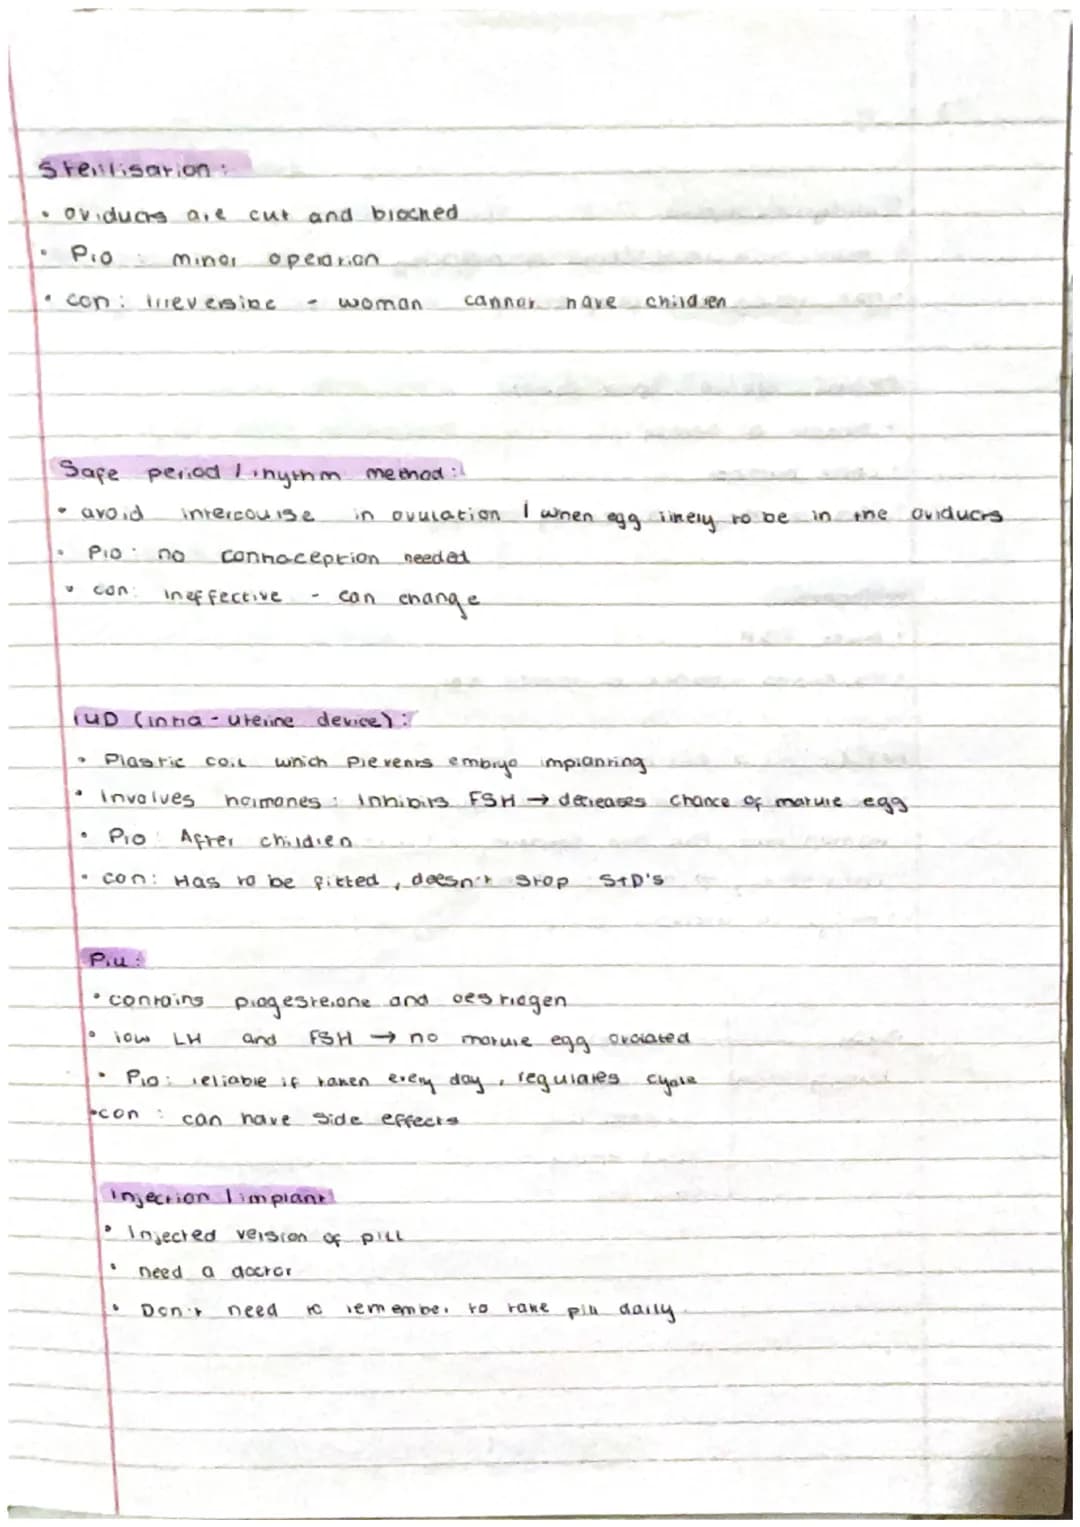 Sterilisation:
• oviducts are cut and blocked
• Pro: minor operation
• con: irreversible - woman cannot have children
Safe period / rhythm method:
• avoid intercourse in ovulation / when egg likely to be in the oviducts
• Pro: no contraception needed
• con: ineffective - can change
IUD (intra-uterine device):
• Plastic coil which prevents embryo implanting
• Involves hormones: Inhibits FSH → decreases chance of mature egg
• Pro: After children
• con: Has to be fitted, doesn't stop STD's
Pill:
• contains progesterone and oestrogen
• low LH and FSH → no mature egg ovulated
• Pro: reliable if taken every day, regulates cycle
• con: can have side effects
Injection / implant
• Injected version of pill
• need a doctor
• Don't need to remember to take pill daily